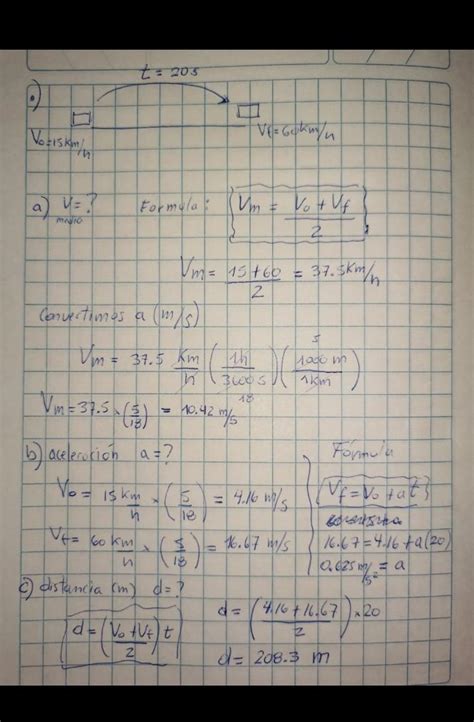 t = 20s
V₀=15km/h
Vf=60km/h
a) V=?
medio
Formula: Vm = V₀ + Vf / 2
Vm = 15+60 / 2 = 37.5 km/h
Convertimos a (m/s)
Vm = 37.5 km/h (1h / 3600 s) (1000 m / 1km)
5
18
Vm=37.5 × (5/18) = 10.42 m/s
b) aceleración a=?
Fórmula
V₀ = 15 km/h × (5/18) = 4.16 m/s
Vf = V₀ + a t
Vf = 60 km/h × (5/18) = 16.67 m/s
16.67 = 4.16 + a (20)
0.625 m/s² = a
c) distancia (m) d=?
d = (V₀ + Vf / 2) t
d = (4.16 + 16.67 / 2) × 20
d = 208.3 m